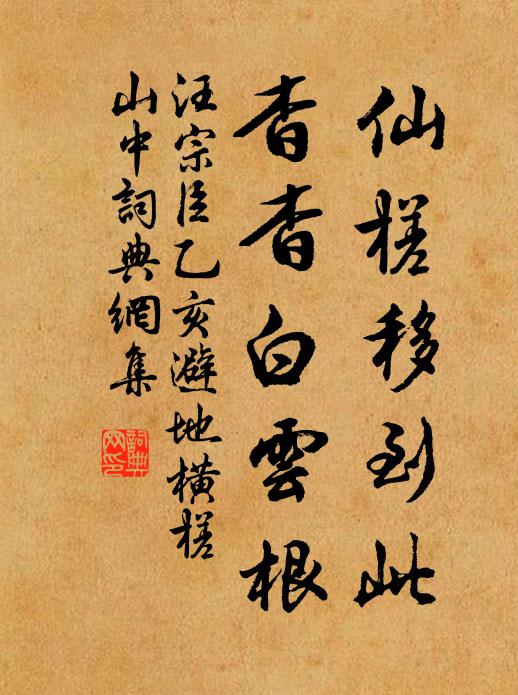 仙槎移到此
杳杳白雲根
汪宗臣乙亥避地橫槎
山中詞典網集
詞典
网印